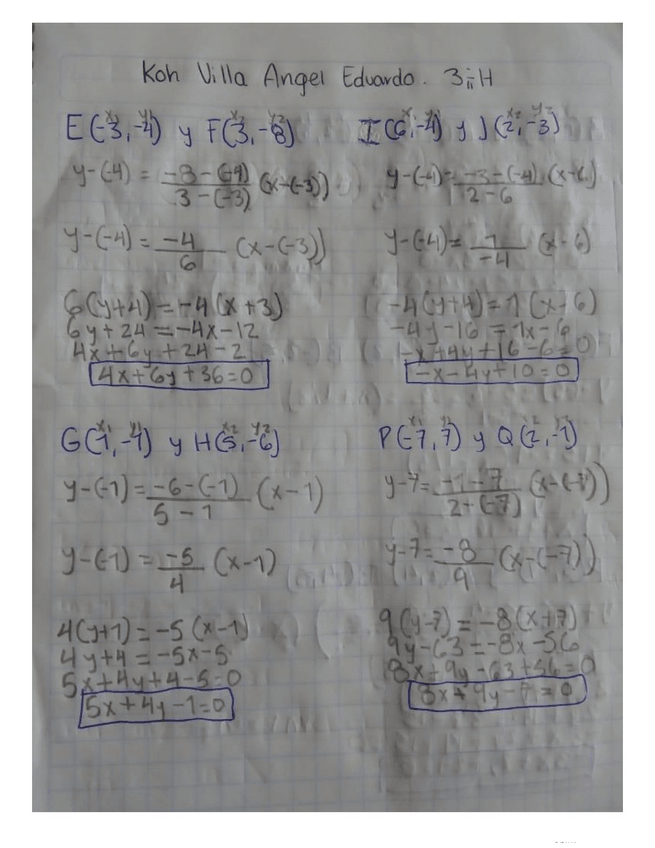 Koh Villa Angel Eduardo. 3 H
E(-3,-4) y F(3,-8)
y-(-4) = -8-(-4) / 3-(-3) (x-(-3))
y-(-4) = -4 / 6 (x-(-3))
6(y+4) = -4(x+3)
6y+24 = -4x-12
4x+6y+24-2
4x+6y+36=0
I(6,-4) y J(2,-3)
y-(-4) = -3-(-4) / 2-6 (x-6)
y-(-4) = 1 / -4 (x-6)
-4(y+4) = 1(x-6)
-4y-16 = 1x-6
-x+4y+16-6=0
-x-4y+10=0
G(1,-1) y H(5,-6)
y-(-1) = -6-(-1) / 5-1 (x-1)
y-(-1) = -5 / 4 (x-1)
4(y+1) = -5(x-1)
4y+4 = -5x-5
5x+4y+4-5=0
5x+4y-1=0
P(-7,7) y Q(2,-1)
y-7 = -1-7 / 2-(-7) (x-(-7))
y-7 = -8 / 9 (x-(-7))
9(y-7) = -8(x+7)
9y-63 = -8x-56
8x+9y-63+56=0
8x+9y-7=0